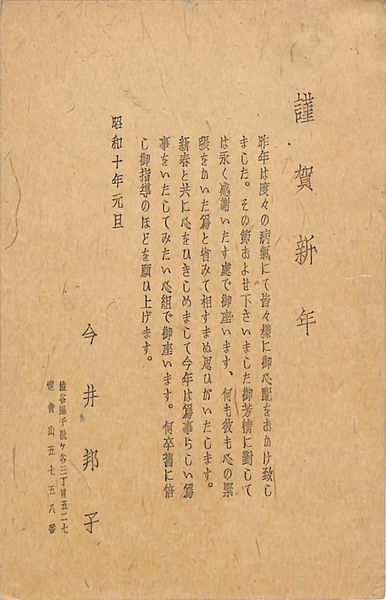 謹賀新年
昨年は度々の病氣にて皆々樣に御心配をおかけ致し
ました。その節およせ下さいました御芳情に對して
は永く感謝いたす處で御座います、何も彼も心の緊
張をかいた爲と省みて相すまぬ思ひがいたします。
新春と共に心をひきしめまして今年は爲事らしい爲
事をいたしてみたい心組で御座います。何卒舊に倍
し御指導のほどを願ひ上げます。
昭和十年元旦
今井邦子
澁谷區千駄ケ谷三丁目五二七
電靑山五七五八番